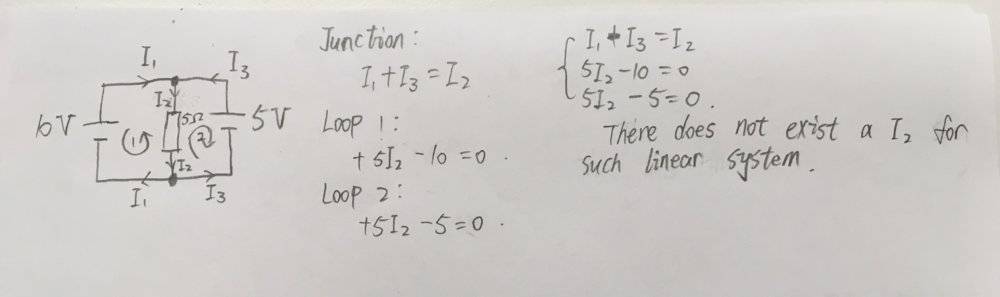 I₁
I₃
I₂
10V
5Ω
5V
1
2
I₂
I₁
I₃
Junction:
I₁+I₃=I₂
Loop 1:
+5I₂-10=0.
Loop 2:
+5I₂-5=0.
I₁+I₃=I₂
5I₂-10=0
5I₂-5=0.
There does not exist a I₂ for
such linear system.